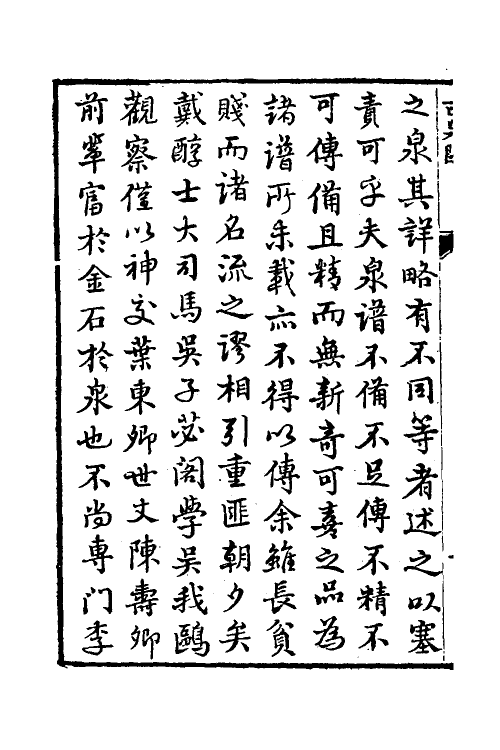 之泉其詳略有不同等者述之以塞
責可乎夫泉譜不備不足傳不精不
可傳備且精而無新奇可喜之品為
諸譜所未載亦不得以傳余雖長貧
賤而諸名流之謬相引重匪朝夕矣
戴醇士大司馬吳子苾閣學吳我鷗
觀察僅以神交葉東卿世丈陳壽卿
前輩富於金石於泉也不尚專門李